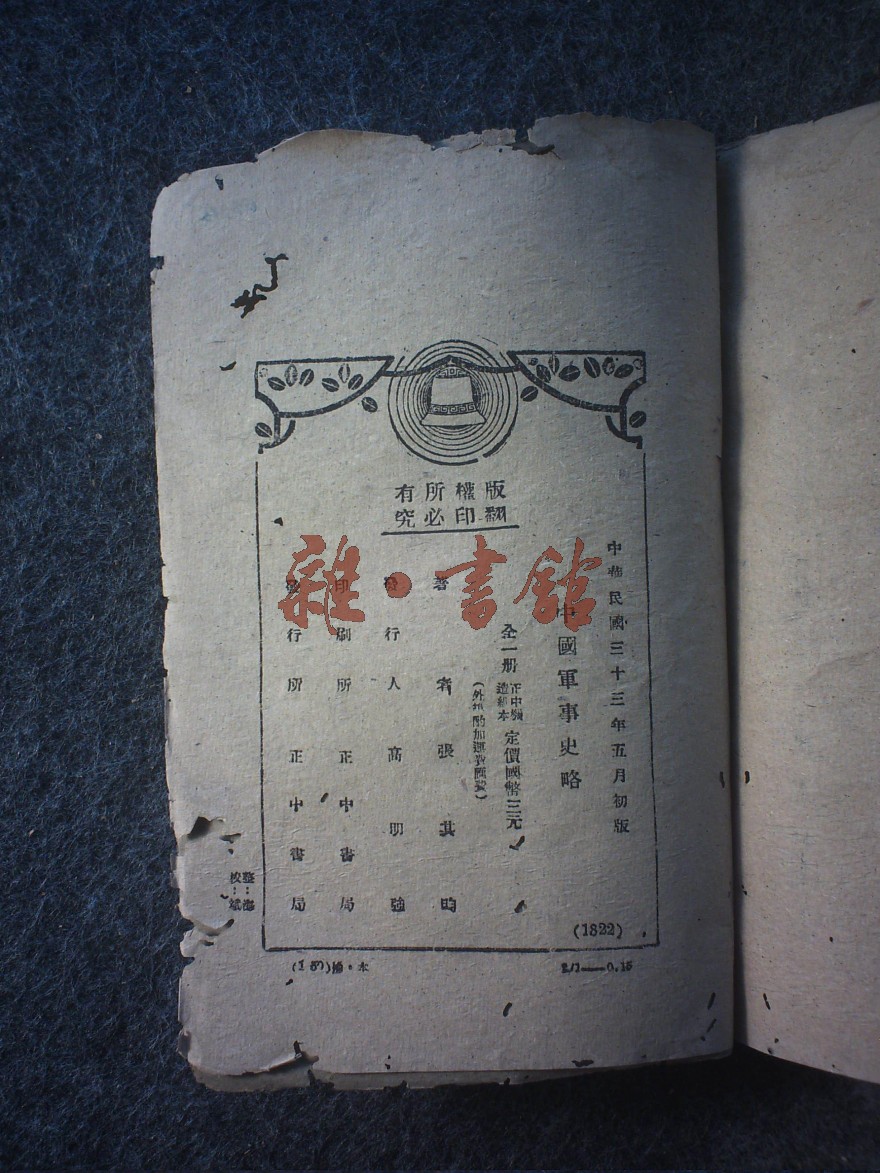 版權所有
翻印必究
中華民國三十三年五月初版
中國軍事史略
全一册 正中紙造紙本 定價國幣三元
(外埠酌加運費匯費)
著者 張其昀
發行人 高明強
印刷所 正中書局
發行所 正中書局
(1822)
雜·書館